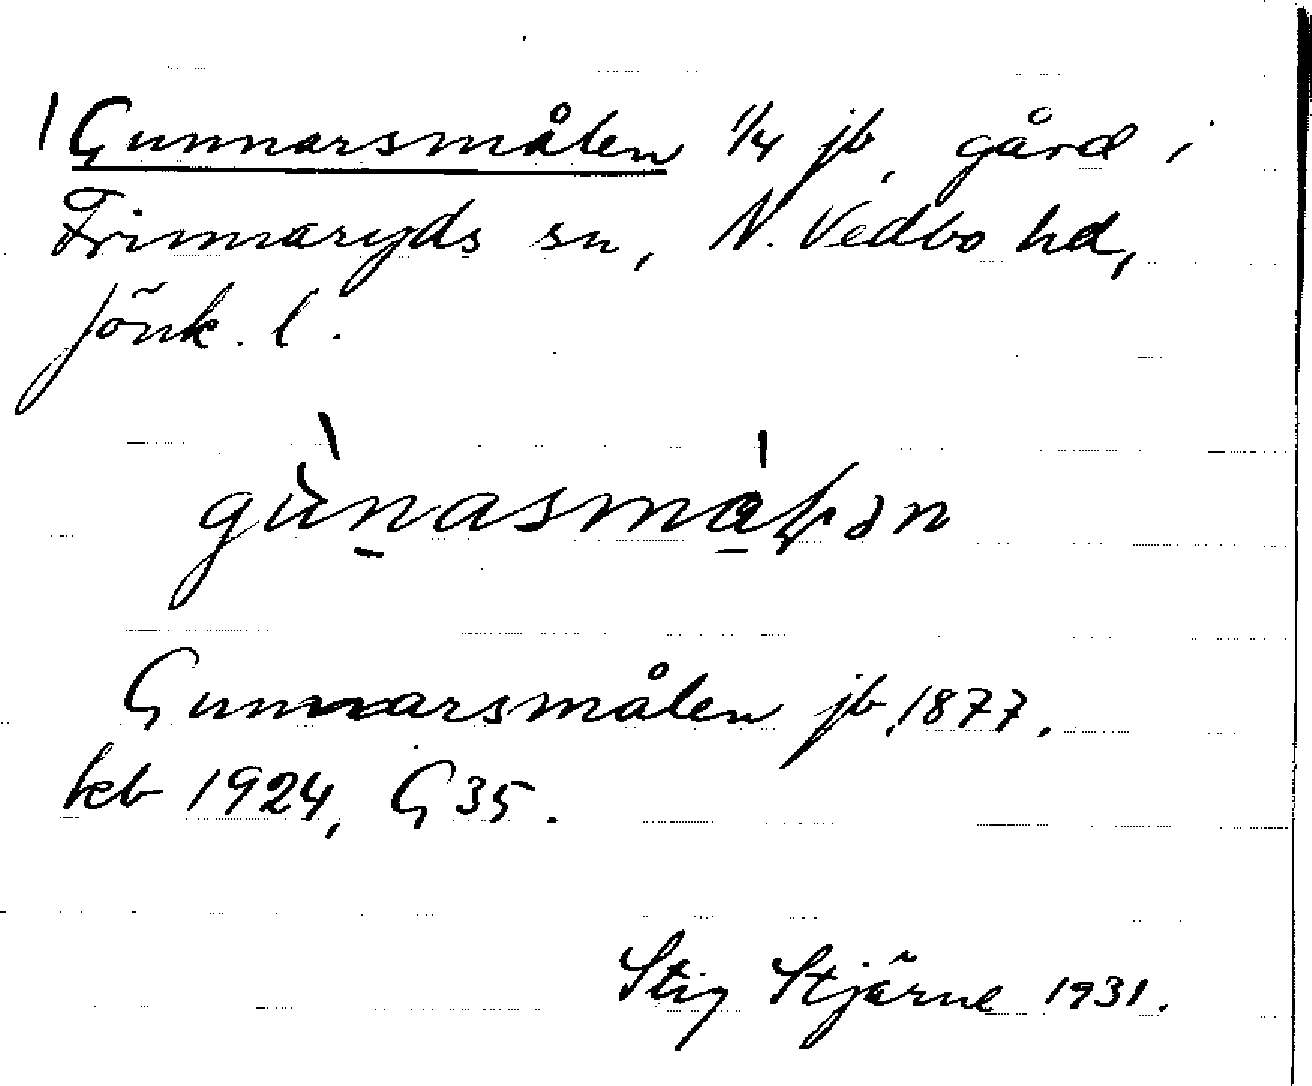 Gunnarsmålen 1/4 jb, gård i
Frinnaryds sn, N. Vedbo hd,
Jönk. l.
Gunnarsmålen jb, 1877.
kb 1924, G 35.
Stig Stjärne 1931.